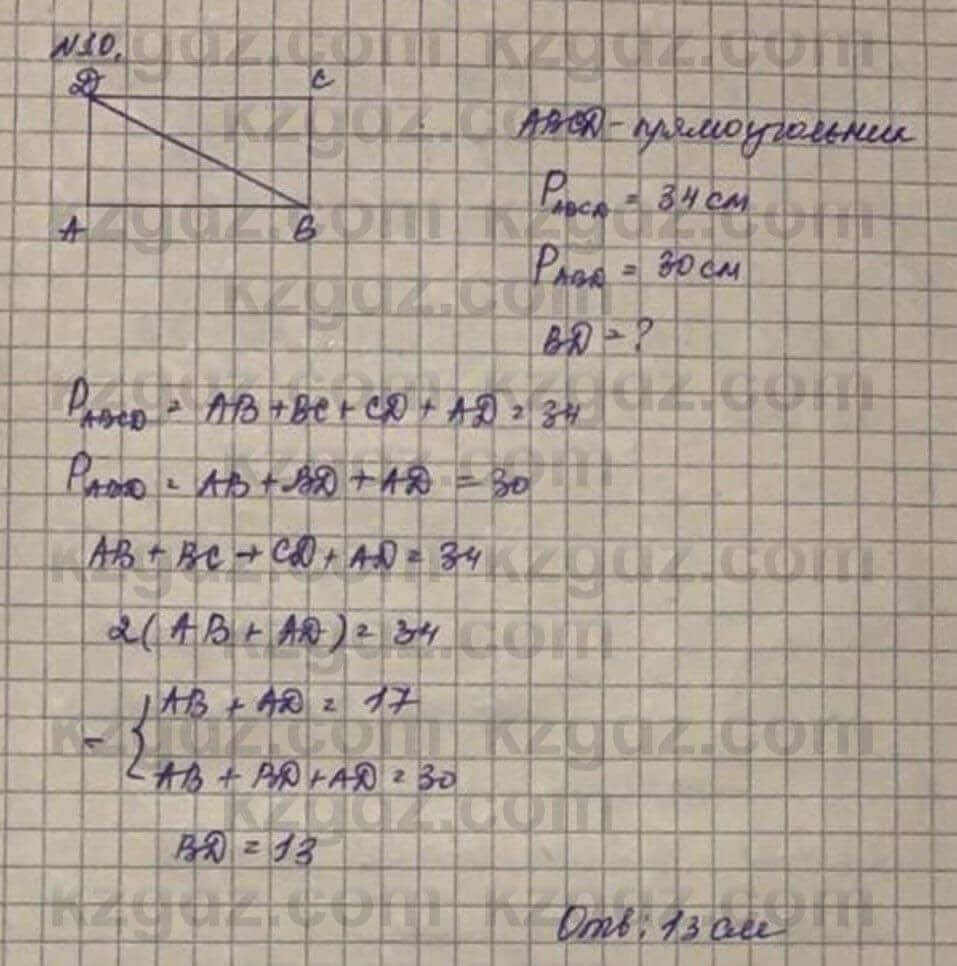 №10.
D C
A B
ABCD - прямоугольник
P ABCD = 34 см
P ABD = 30 см
BD = ?
P ABCD = AB + BC + CD + AD = 34
P ABD = AB + BD + AD = 30
AB + BC + CD + AD = 34
2(AB + AD) = 34
- { AB + AD = 17
AB + BD + AD = 30
BD = 13
Отв: 13 см
kzgdz.com